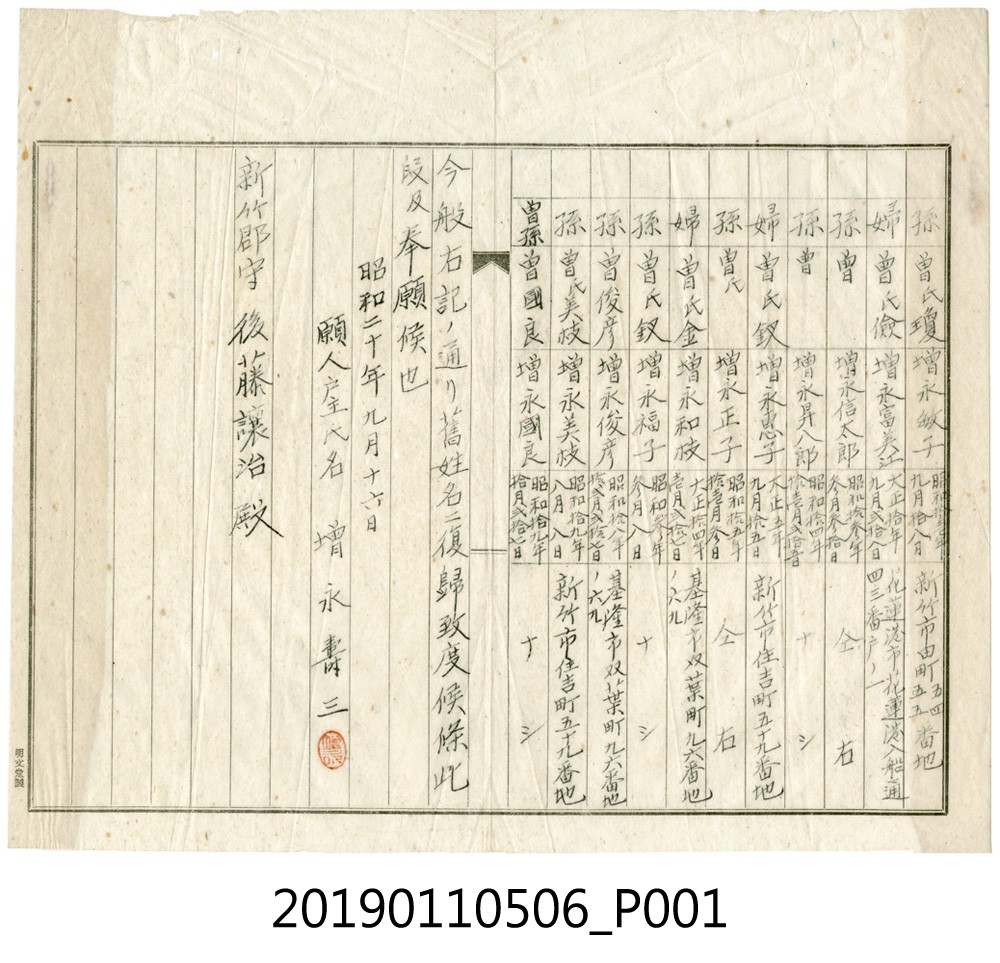 孫 曾氏瓊 增永敏子 新竹市田町五五四番地
婦 曾氏儉 增永富美江 大正拾年九月弐拾八日 花蓮港市花蓮港入船通四三番户ノ一
孫 曾 增永信太郎 昭和拾参年参月参拾日 仝右
孫 曾 增永昇八郎 昭和拾四年 ナシ
婦 曾氏釵 增永惠子 大正五年九月拾五日 新竹市住吉町五十九番地
孫 曾氏 增永正子 昭和拾五年拾壱月参日 仝右
婦 曾氏金 增永和枝 大正拾四年壱月弐拾七日 基隆市双葉町九六番地ノ六九
孫 曾氏釵 增永福子 昭和 年参月八日 ナシ
孫 曾俊彦 增永俊彦 昭和拾八年拾弐月弐拾七日 基隆市双葉町九六番地ノ六九
孫 曾氏美枝 增永美枝 昭和拾九年八月八日 新竹市住吉町五十九番地
曾孫 曾國良 增永國良 昭和拾九年拾月弐拾七日 ナシ
今般右記ノ通リ舊姓名ニ復歸致度候條此
段及奉願候也
昭和二十年九月十六日
願人户主氏名 增永壽三
新竹郡守 後藤讓治殿
明文堂製
20190110506_P001